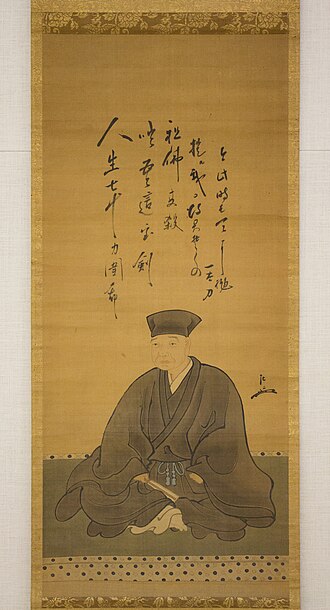 人生七十力囲希
咄吾這宝剣
祖佛共殺
提ル我得具足の
一太刀
今此時そ天に抛